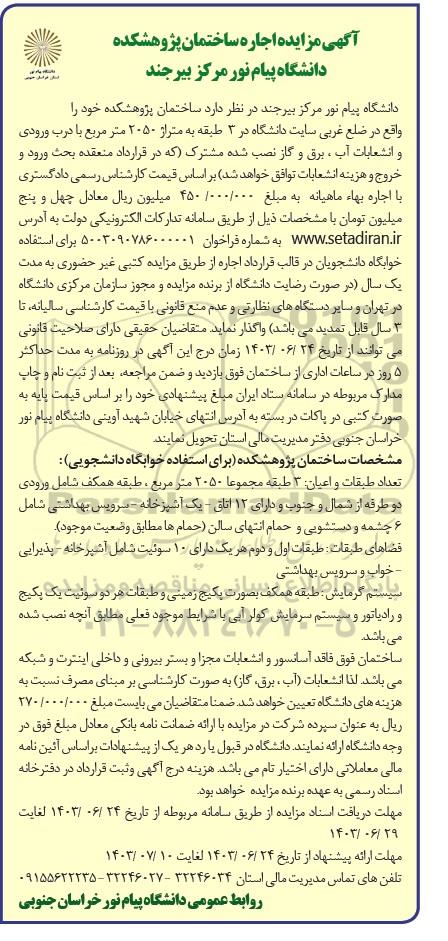 آگهی مزایده اجاره ساختمان پژوهشکده
دانشگاه پیام نور مرکز بیرجند
دانشگاه پیام نور
استان خراسان جنوبی
دانشگاه پیام نور مرکز بیرجند در نظر دارد ساختمان پژوهشکده خود را
واقع در ضلع غربی سایت دانشگاه در ۳ طبقه به متراژ ۲۰۵۰ متر مربع با درب ورودی
و انشعابات آب ، برق و گاز نصب شده مشترک (که در قرارداد منعقده بحث ورود و
خروج و هزینه انشعابات توافق خواهد شد) بر اساس قیمت کارشناس رسمی دادگستری
با اجاره بهاء ماهیانه به مبلغ ۴۵۰/۰۰۰/۰۰۰ میلیون ریال معادل چهل و پنج
میلیون تومان با مشخصات ذیل از طریق سامانه تدارکات الکترونیکی دولت به آدرس
www.setadiran.ir به شماره فراخوان ۵۰۰۳۰۹۰۷۸۶۰۰۰۰۰۱ برای استفاده
خوابگاه دانشجویان در قالب قرارداد اجاره از طریق مزایده کتبی غیر حضوری به مدت
یک سال (در صورت رضایت دانشگاه از برنده مزایده و مجوز سازمان مرکزی دانشگاه
در تهران و سایر دستگاه های نظارتی و عدم منع قانونی با قیمت کارشناسی سالیانه، تا
۳ سال قابل تمدید می باشد) واگذار نماید. متقاضیان حقیقی دارای صلاحیت قانونی
می توانند از تاریخ ۲۴ /۰۶ /۱۴۰۳ زمان درج این آگهی در روزنامه به مدت حداکثر
۵ روز در ساعات اداری از ساختمان فوق بازدید و ضمن مراجعه، بعد از ثبت نام و چاپ
مدارک مربوطه در سامانه ستاد ایران مبلغ پیشنهادی خود را بر اساس قیمت پایه به
صورت کتبی در پاکات در بسته به آدرس انتهای خیابان شهید آوینی دانشگاه پیام نور
خراسان جنوبی دفتر مدیریت مالی استان تحویل نمایند.
مشخصات ساختمان پژوهشکده (برای استفاده خوابگاه دانشجویی) :
تعداد طبقات و اعیان: ۳ طبقه مجموعا ۲۰۵۰ متر مربع ، طبقه همکف شامل ورودی
دو طرفه از شمال و جنوب و دارای ۱۲ اتاق - یک آشپزخانه - سرویس بهداشتی شامل
۶ چشمه و دستشویی و حمام انتهای سالن (حمام ها مطابق وضعیت موجود).
فضاهای طبقات : طبقات اول و دوم هر یک دارای ۱۰ سوئیت شامل آشپزخانه - پذیرایی
- خواب و سرویس بهداشتی
سیستم گرمایش : طبقه همکف بصورت پکیج زمینی و طبقات هر دو سوئیت یک پکیج
و رادیاتور و سیستم سرمایش کولر آبی با شرایط موجود فعلی مطابق آنچه نصب شده
می باشد.
ساختمان فوق فاقد آسانسور و انشعابات مجزا و بستر بیرونی و داخلی اینترنت و شبکه
می باشد. لذا انشعابات (آب ، برق، گاز) به صورت کارشناسی بر مبنای مصرف نسبت به
هزینه های دانشگاه تعیین خواهد شد. ضمنا متقاضیان می بایست مبلغ ۲۷۰/۰۰۰/۰۰۰
ریال به عنوان سپرده شرکت در مزایده با ارائه ضمانت نامه بانکی معادل مبلغ فوق در
وجه دانشگاه ارائه نمایند. دانشگاه در قبول یا رد هر یک از پیشنهادات بر اساس آئین نامه
مالی معاملاتی دارای اختیار تام می باشد. هزینه درج آگهی وثبت قرارداد در دفترخانه
اسناد رسمی به عهده برنده مزایده خواهد بود.
مهلت دریافت اسناد مزایده از طریق سامانه مربوطه از تاریخ ۲۴ /۰۶ /۱۴۰۳ لغایت
۲۹ /۰۶ /۱۴۰۳
مهلت ارائه پیشنهاد از تاریخ ۲۴ /۰۶ /۱۴۰۳ لغایت ۱۰ /۰۷ /۱۴۰۳
تلفن های تماس مدیریت مالی استان ۳۲۲۴۶۰۳۴ - ۳۲۲۴۶۰۲۷ - ۰۹۱۵۵۶۲۲۲۳۵
روابط عمومی دانشگاه پیام نور خراسان جنوبی
پایگاه اطلاع رسانی مناقصه و مزایده
۰۲۱-۸۸۳۴۹۶۷۰-۵